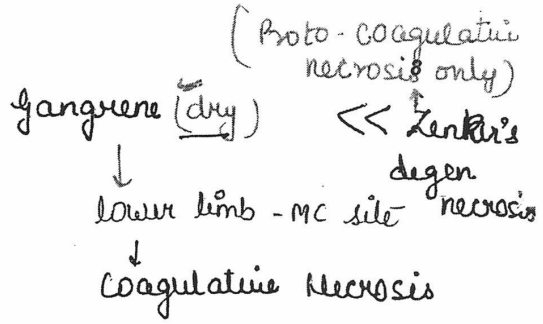 (Proto-coagulative
necrosis only)
Gangrene (dry) << Zenker's
degen
necrosis
lower limb - MC site
Coagulative Necrosis